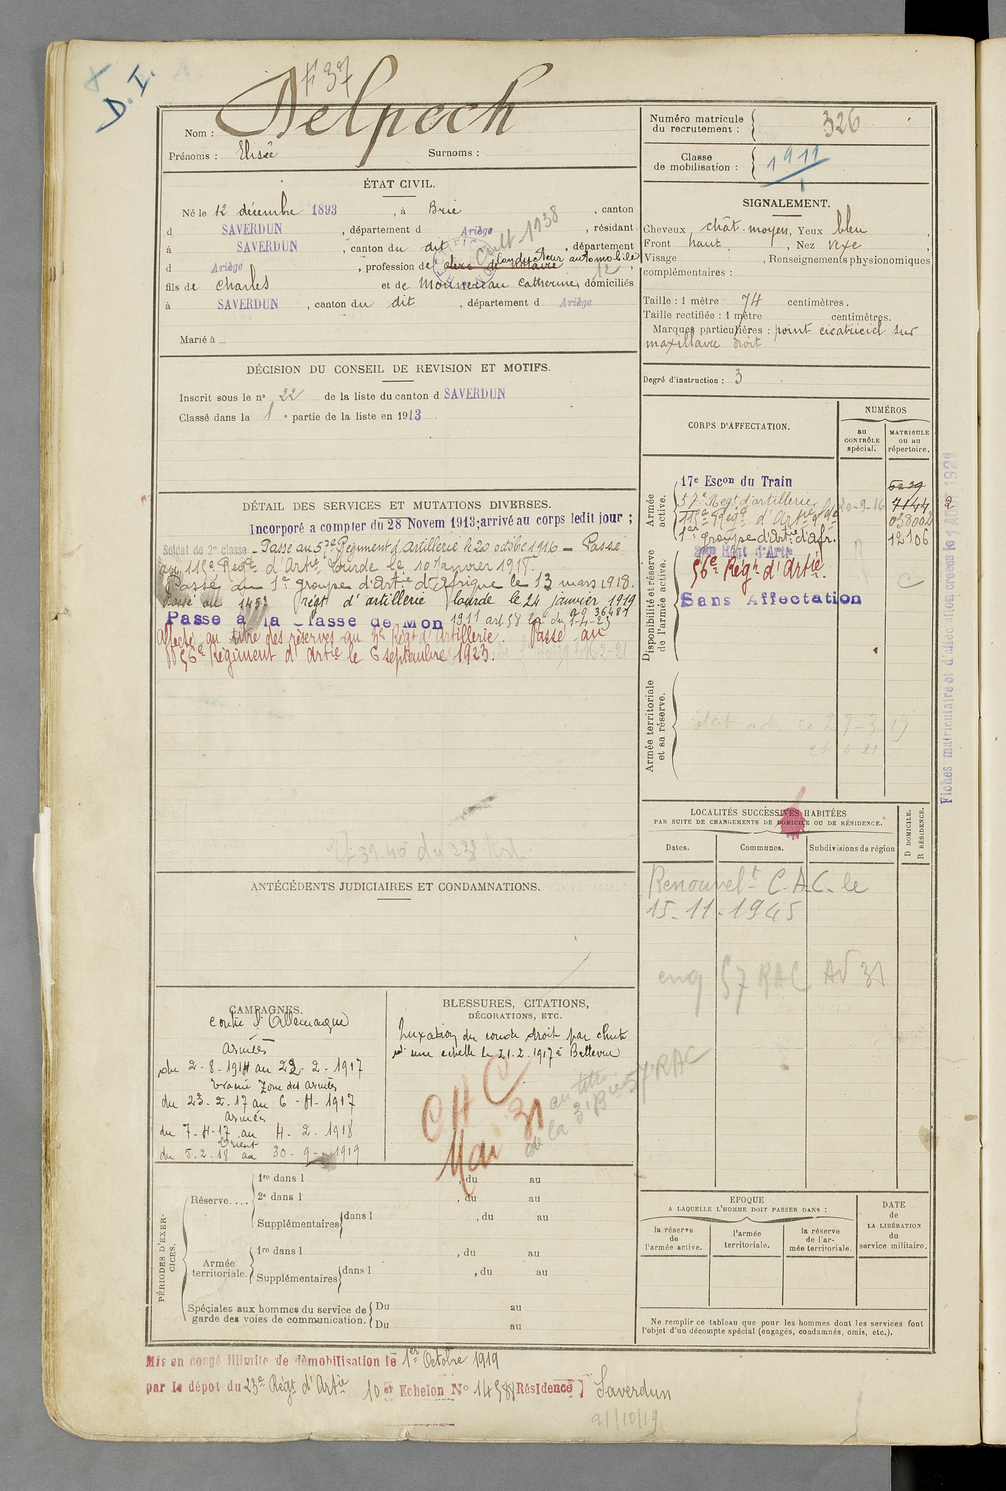 D. I.
F 37
Nom : Delpech
Prénoms : Elisée Surnoms :
ÉTAT CIVIL.
Né le 12 décembre 1893, à Brie, canton
d SAVERDUN, département d Ariège, résidant
à SAVERDUN, canton du dit, département
d Ariège, profession de clerc de notaire conducteur automobile
cult 1938
fils de Charles et de Catherine, domiciliés
à SAVERDUN, canton du dit, département d Ariège
Marié à
DÉCISION DU CONSEIL DE REVISION ET MOTIFS.
Inscrit sous le n° 22 de la liste du canton d SAVERDUN
Classé dans la 1e partie de la liste en 1913
DÉTAIL DES SERVICES ET MUTATIONS DIVERSES.
Incorporé a compter du 28 Novem 1913; arrivé au corps ledit jour ;
Soldat de 2e classe - Passé au 57e Régiment d'Artillerie le 20 octobre 1916 - Passé
au 115e Régt d'Artie Lourde le 10 janvier 1918.
Passé au 1er groupe d'Artie d'Afrique le 13 mars 1918.
Passé au 145e régt d'artillerie lourde le 24 janvier 1919
Passé à la Classe de Mon 1911 art 58 loi du 1-4-23
Affecté au titre des réserves au 3e Régt d'Artillerie. Passé au
56e Régiment d'Artie le 6 septembre 1923.
ANTÉCÉDENTS JUDICIAIRES ET CONDAMNATIONS.
CAMPAGNES.
Contre l'Allemagne
Armées
du 2-8-1914 au 22-2-1917
Zone des armées
du 23-2-17 au 6-4-1917
Armées
du 7-4-17 au 4-2-1918
Orient
du 5-2-18 au 30-9-1919
BLESSURES, CITATIONS,
DÉCORATIONS, ETC.
Luxation du coude droit par chute
d'une echelle le 21.2.1917 à Bellevue
C H C
Mai 31
au titre
de la 3e Bie 57 RAC
PÉRIODES D'EXERCICES.
Réserve....
1re dans l , du au
2e dans l , du au
Supplémentaires dans l , du au
Armée territoriale.
1re dans l , du au
Supplémentaires dans l , du au
Spéciales aux hommes du service de garde des voies de communication.
Du au
Du au
Numéro matricule du recrutement : 326
Classe de mobilisation : 1911
SIGNALEMENT.
Cheveux chât. moyen, Yeux bleu
Front haut, Nez vexe
Visage , Renseignements physionomiques
complémentaires :
Taille : 1 mètre 74 centimètres.
Taille rectifiée : 1 mètre centimètres.
Marques particulières : point cicatriciel sur
maxillaire droit
Degré d'instruction : 3
CORPS D'AFFECTATION.
NUMÉROS
au CONTRÔLE spécial.
MATRICULE ou au répertoire.
Armée active.
17e Escon du Train 5239
57e Régt d'artillerie 20-9-16 7144
115e Régt d'Artie
1er groupe d'Artie d'afr. 12106
Disponibilité et réserve de l'armée active.
56e Régt d'Artie
Sans Affectation
Armée territoriale et sa réserve.
LOCALITÉS SUCCESSIVES HABITÉES
PAR SUITE DE CHANGEMENTS DE DOMICILE OU DE RÉSIDENCE.
Dates. Communes. Subdivisions de région
D DOMICILE. R RÉSIDENCE.
Renouvelt C.A.C. le
15-11-1945
57 RAC
EPOQUE
A LAQUELLE L'HOMME DOIT PASSER DANS :
la réserve de l'armée active.
l'armée territoriale.
la réserve de l'armée territoriale.
DATE de LA LIBÉRATION du service militaire.
Ne remplir ce tableau que pour les hommes dont les services font
l'objet d'un décompte spécial (engagés, condamnés, omis, etc.).
Mis en congé illimité de démobilisation le 1er Octobre 1919
par le dépot du 23e Régt d'Artie 10e Echelon N° Résidence Saverdun